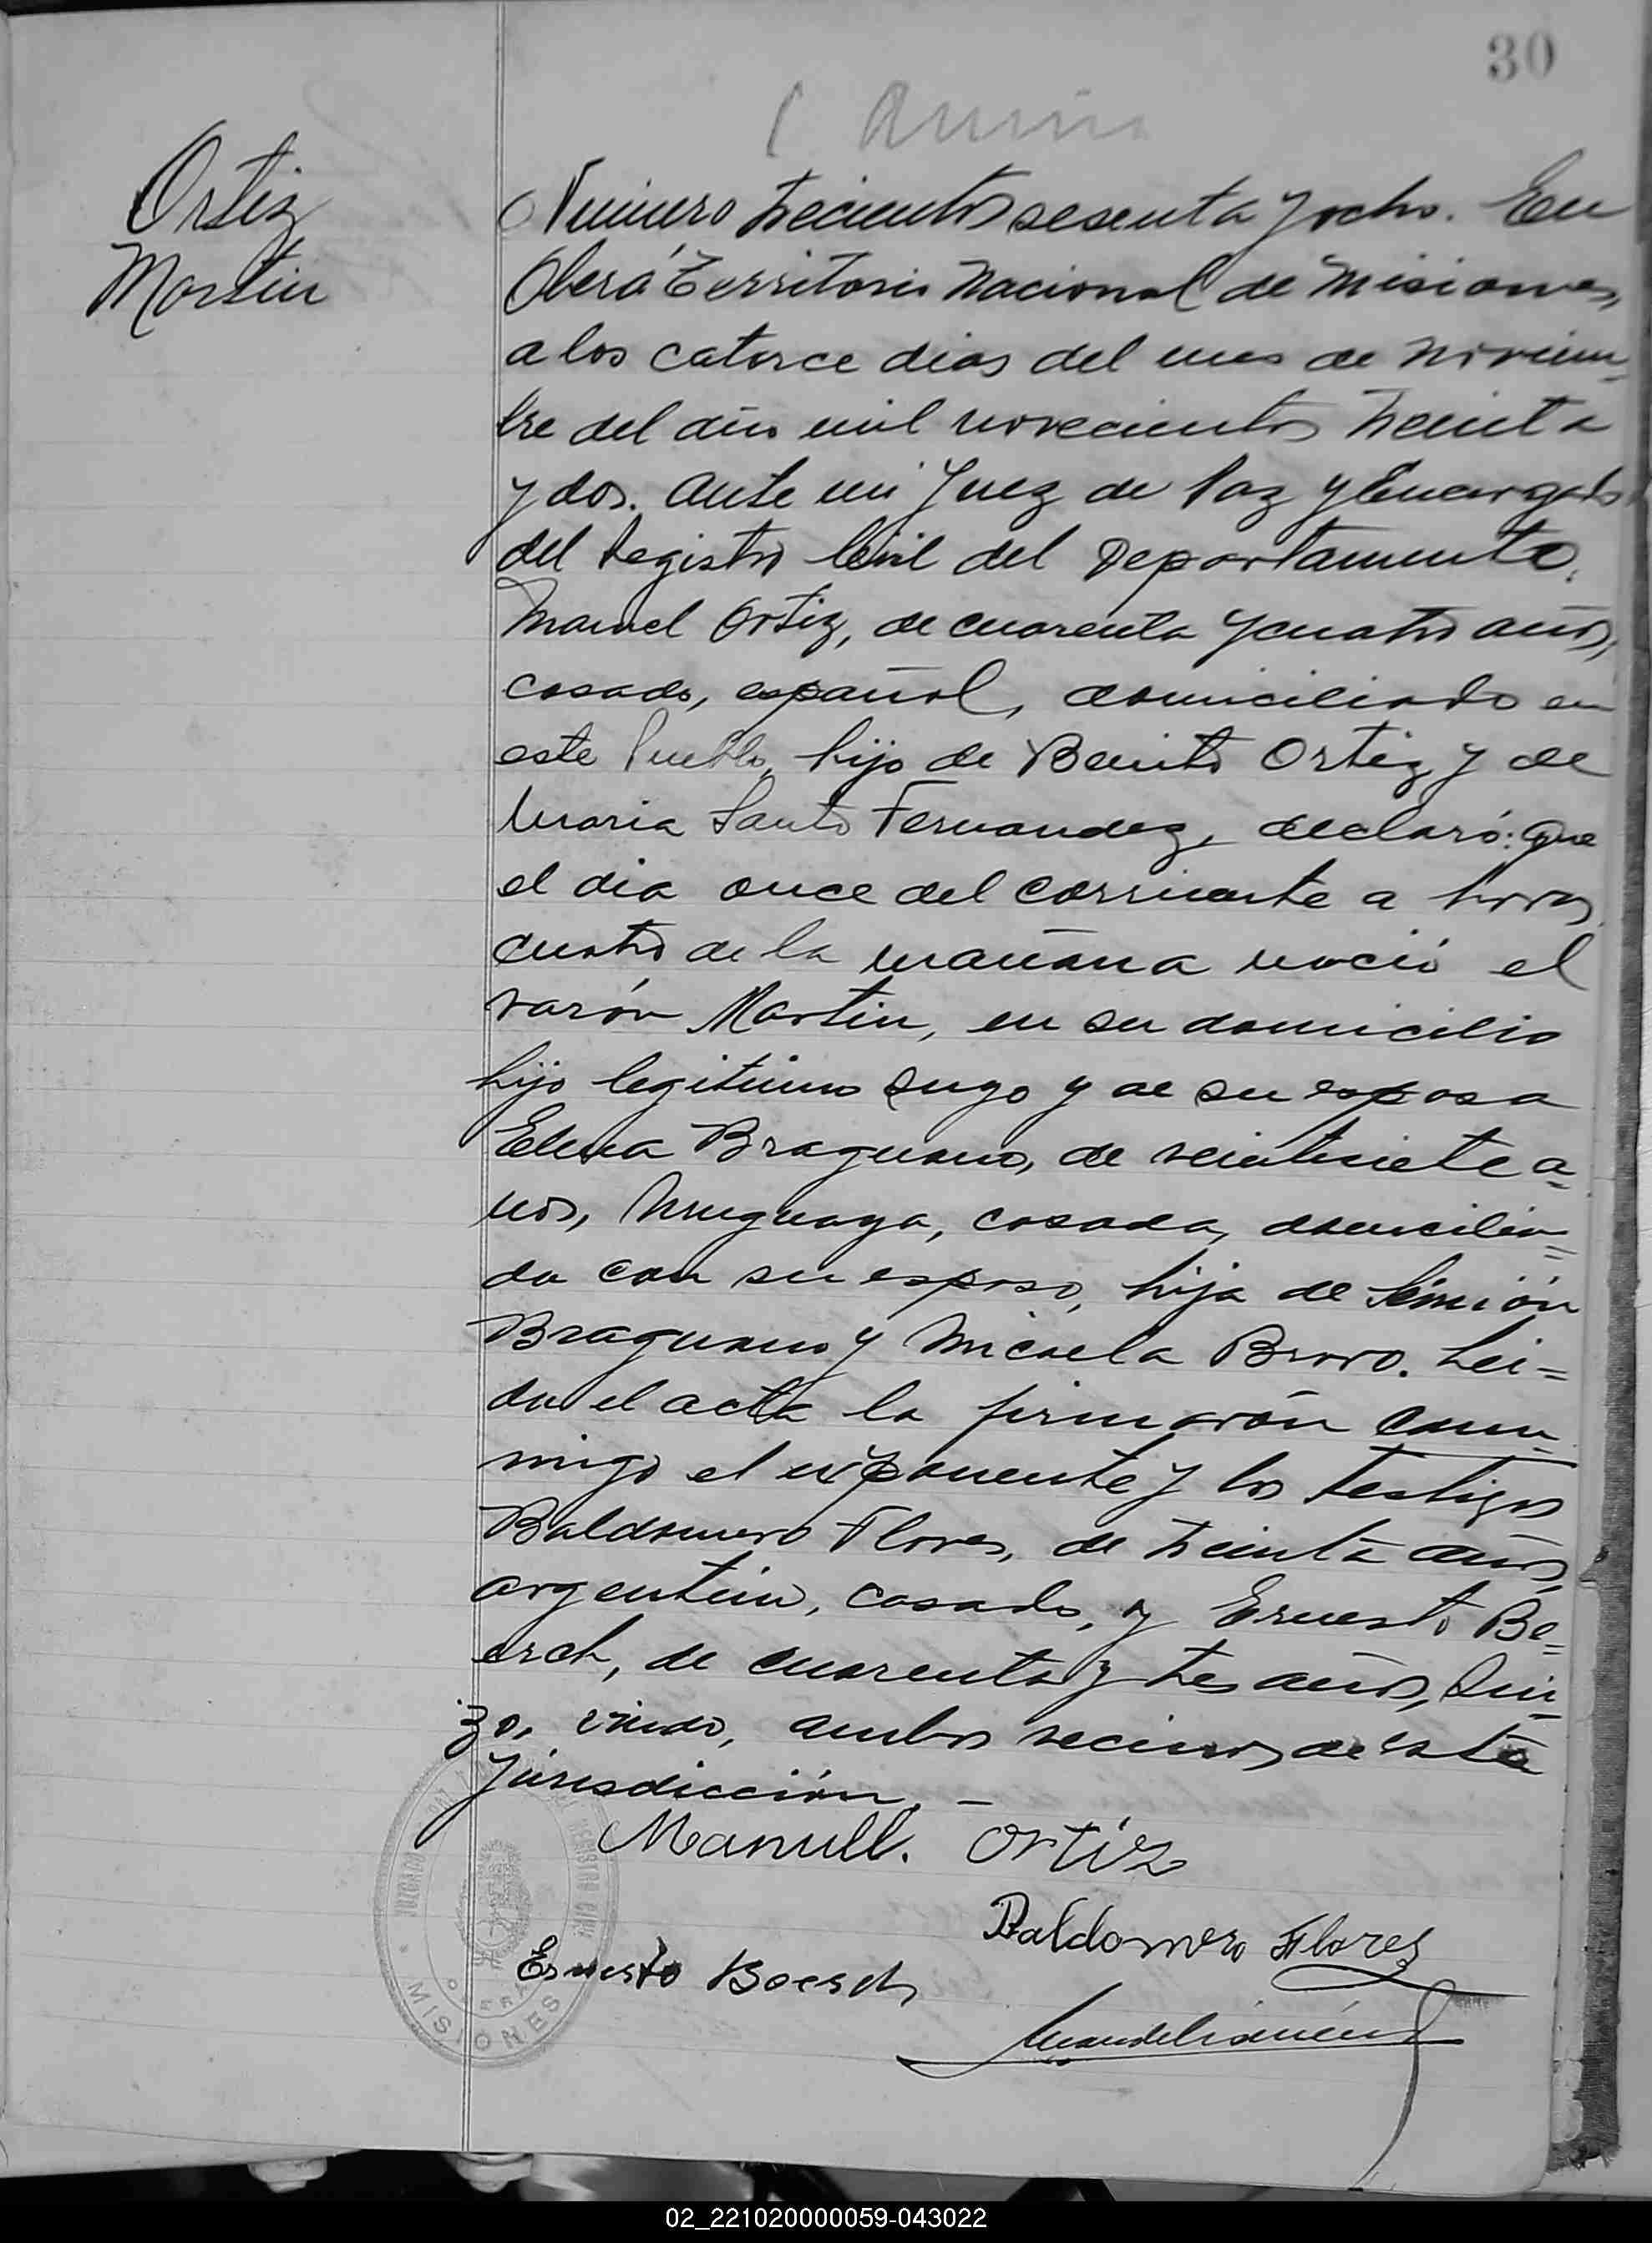 30
Ortiz
Martin
Numero trecientos sesenta y ocho. En
Oberá Territorio Nacional de Misiones,
a los catorce dias del mes de noviem-
bre del año mil novecientos treinta
y dos. Ante mi Juez de Paz y Encargado
del Registro Civil del Departamento,
Manuel Ortiz, de cuarenta y cuatro años,
casado, español, domiciliado en
este Pueblo, hijo de Benito Ortiz y de
Maria Santo Fernandez, declaró: Que
el dia once del corriente a horas
cuatro de la mañana nació el
varón Martin, en su domicilio
hijo legitimo suyo y de su esposa
Elena Braguano, de veintisiete a=
ños, Uruguaya, casada, domicilia=
da con su esposo, hija de Simión
Braguano y Micaela Bravo. Lei=
da el acta la firmarón con-
migo el exponente y los testigos
Baldomero Flores, de treinta años,
argentino, casado, y Ernesto Bo=
esch, de cuarenta y tres años, Sui-
zo, viudo, ambos vecinos de esta
Jurisdicción. –
Manuel. Ortiz
Baldomero Flores
Ernesto Boesch
JUZGADO DE PAZ
REGISTRO CIVIL
OBERÁ
MISIONES
02_221020000059-043022